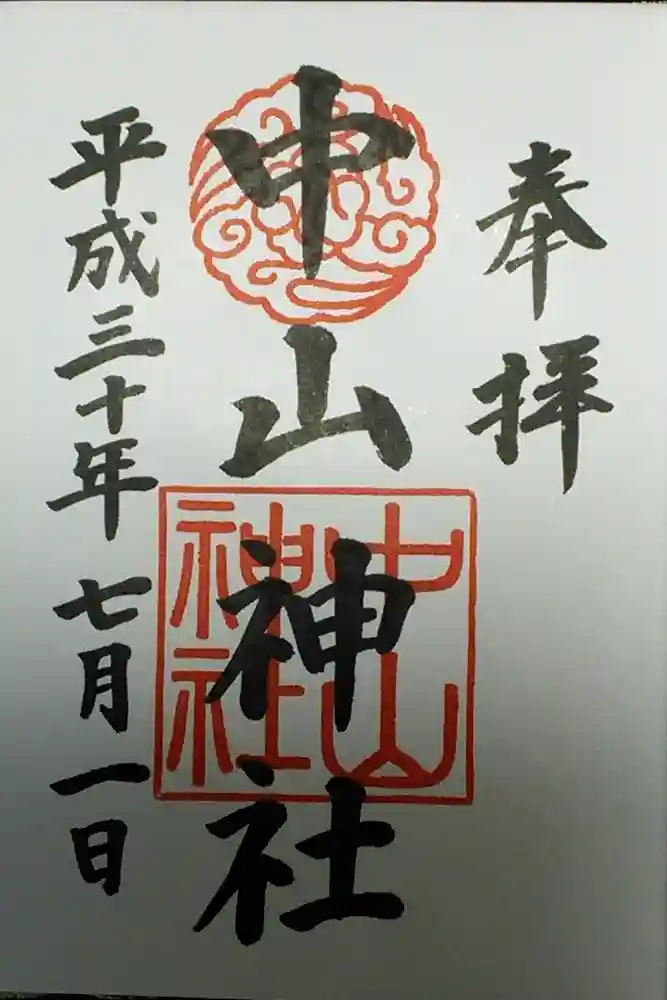 奉拝
中山神社
中山
神社
平成三十年七月一日